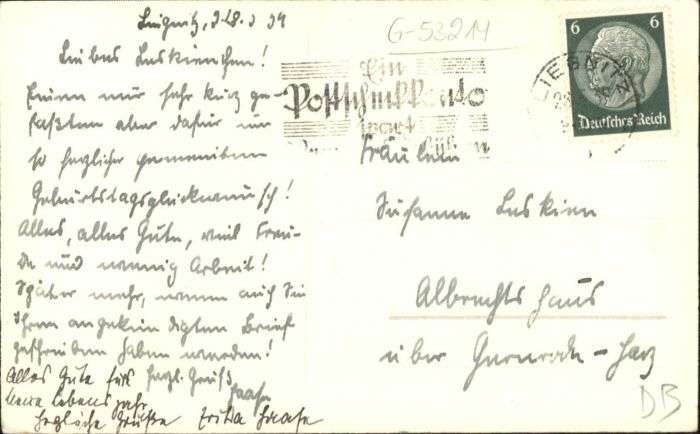 Liegnitz, d. 28. 3. 39
Liebes Leskienchen!
Einen nur sehr kurz ge-
faßten aber dafür um
so herzlicher gemeinten
Geburtstagsglückwunsch!
Alles, alles Gute, viel Freu-
de und wenig Arbeit!
Später mehr, wenn auch Sie
Ihren angekündigten Brief
geschrieben haben werden!
Herzl. Grüße
Haafe
Alles Gute fürs
neue Lebensjahr
Herzliche Grüße Erika Haafe
G-53214
Ein
Postscheckkonto
spart
LIEGNITZ
6 6
Deutsches Reich
Fräulein
Susanne Leskien
Albrechtshaus
über Gernrode-Harz
DB